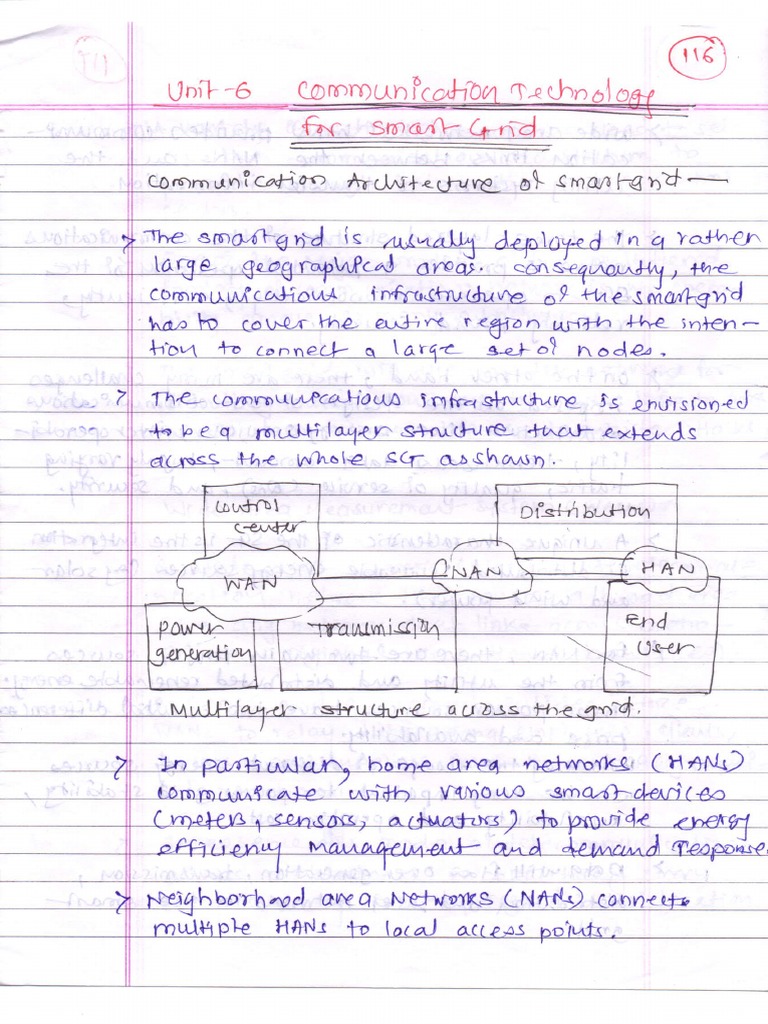 116
Unit-6 Communication Technology
for smart Grid
Communication Architecture of smartgrid —
> The smartgrid is usually deployed in a rather
large geographical areas. consequently, the
communications infrastructure of the smartgrid
has to cover the entire region with the inten-
tion to connect a large set of nodes.
> The communications infrastructure is envisioned
to be a multilayer structure that extends
across the whole SG as shown.
control
center
Distribution
WAN
NAN
HAN
power
generation
Transmission
End
User
Multilayer structure across the grid.
> In particular, home area networks (HANs)
communicate with various smart devices
(meters, sensors, actuators) to provide energy
efficiency management and demand response.
> Neighborhood area Networks (NANs) connects
multiple HANs to local access points.